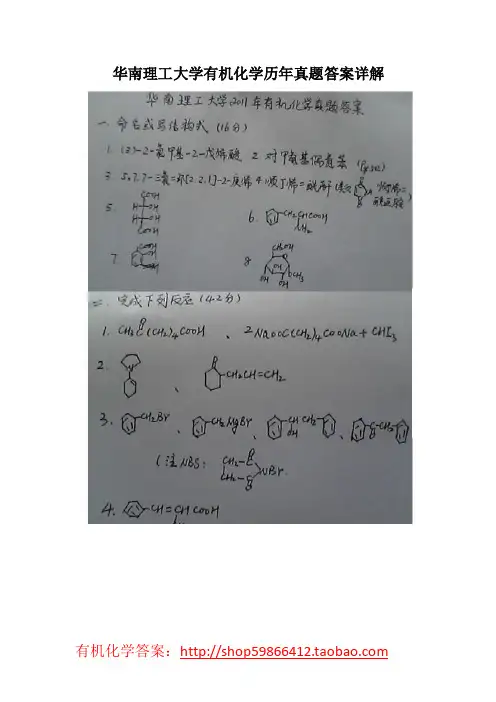 华南理工大学有机化学历年真题答案详解
华南理工大学2011年有机化学真题答案
一、命名或写结构式（16分）
1. (3)-2-氯甲基-2-戊烯酸 2. 对甲氨基偶氮苯
3. 5,7,7-三氯二环[2.2.1]-2-庚烯 4. 顺丁烯二酸酐
5. COOH
H OH
H OH
COOH
6. CH2CHCOOH
NH2
7. COOH
COOH
8. CH2OH
O
OH
OCH3
OH
OH
二、完成下列反应（42分）
1. CH3C(CH2)4COOH 、 2NaOOC(CH2)4COONa + CHI3
2. N 、 O CH2CH=CH2
3. CH2Br 、 CH2MgBr 、 CH CH2 OH 、 C-CH2 O
(注NBS: CH2-C O CH2-C O NBr
4. CH=CHCOOH
有机化学答案：http://shop59866412.taobao.com